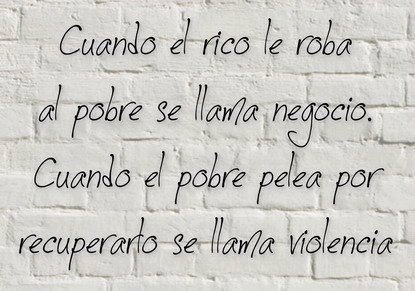 Cuando el rico le roba
al pobre se llama negocio.
Cuando el pobre pelea por
recuperarlo se llama violencia